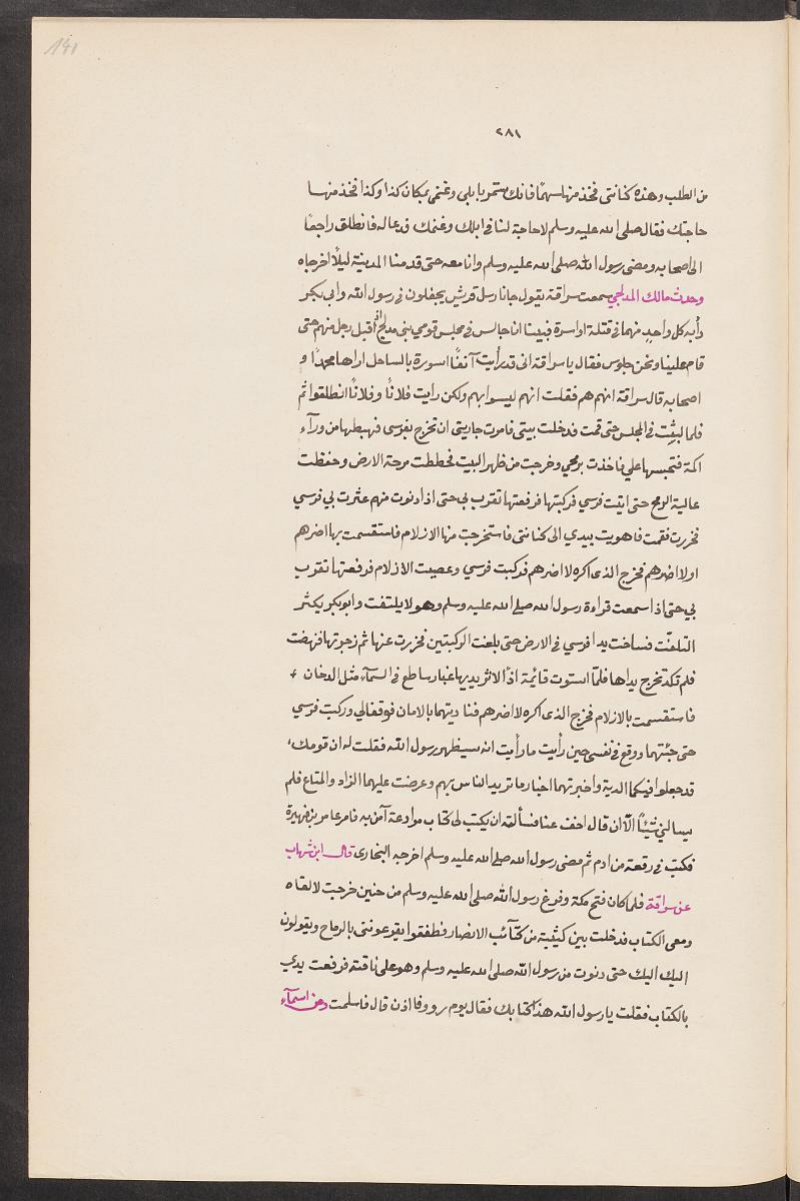 141
٢٨١
من الطلب وهذه كنانتى فخذ منها سهمًا فانك ستمر بابلى وغنمى بمكان كذا وكذا فخذ منها
حاجتك فقال صلى الله عليه وسلم لا حاجة لنا فى ابلك وغنمك فدعا له فانطلق راجعًا
الى اصحابه ومضى رسول الله صلى الله عليه وسلم وانا معه حتى قدمنا المدينة ليلًا اخرجاه
وحدث مالك المدلجي سمعت سراقة يقول جانا رسل قريش يجعلون في رسول الله وابى بكر
دأبه كل واحدٍ منهما فى قتله او اسره فبينا انا جالس فى مجلس قومي بنى مدلج اذ اقبل رجل منهم حتى
قام علينا ونحن جلوس فقال يا سراقة انى قد رأيت آنفًا اسورة بالساحل اراها محمدًا و
اصحابه قال سراقة انهم هم فقلت انهم ليسوا بهم ولكن رايت فلانًا وفلانًا انطلقوا ثم
فلما لبثت فى المجلس حتى قمت فدخلت بيتى فامرت جاريتى ان تخرج بفرسى فهبطها من ورآء
اكمة فتحبسها علي فاخذت برمحي وخرجت من ظهر البيت فخططت مرجة الارض وخفظت
عالية الرمح حتى اتيت فرسي فركبتها فرفعتها تقرب بي حتى اذا دنوت منهم عثرت بي فرسي
فخررت فقمت فاهويت بيدي الى كنانتى فاستخرجت منها الازلام فاستقسمت بها اضرهم
او لا اضرهم فخرج الذى اكره لا اضرهم فركبت فرسي وعصيت الازلام فرفعتها تقرب
بي حتى اذا سمعت قراءة رسول الله صلى الله عليه وسلم وهو لا يلتفت وابو بكر يكثر
التلفت فساخت يدا فرسي فى الارض حتى بلغت الركبتين فخررت عنها ثم زجرتها فنهضت
فلم تكد تخرج يداها فلمّا استوت قائمة اذًا لاثر يديها غبار ساطع فى السمآء مثل الدخان
فاستقسمت بالازلام فخرج الذى اكره لا اضرهم فناديتهما بالامان فوقفا لي وركبت فرسي
حتى جئتهما ووقع فى نفسى حين رأيت ما رأيت انه سيظهر رسول الله فقلت له ان قومك
قد جعلوا فيكما الدية واخبرتهما اخبار ما تريد الناس بهم وعرضت عليهما الزاد والمتاع فلم
يسالني شيئًا الّا ان قال اخف عنا فسألته ان يكتب لى كتاب موادعة آمن به فامر عامر بن فهيرة
فكتب فى رقعة من ادم ثم مضى رسول الله صلى الله عليه وسلم اخرجه البخارى قال ابن شهاب
عن سراقة فلما كان فتح مكة وفرغ رسول الله صلى الله عليه وسلم من حنين خرجت لالقاه
ومعى الكتاب فدخلت بين كيثبة من كتآئب الانصار فطفقوا يقوعونتى بالرماح ويقولون
اليك اليك حتى دنوت من رسول الله صلى الله عليه وسلم وهو على ناقته فرفعت يدي
بالكتاب فقلت يا رسول الله هذا كتابك فقال يوم وفا اذن قال فاسلمت وعن اسمآء